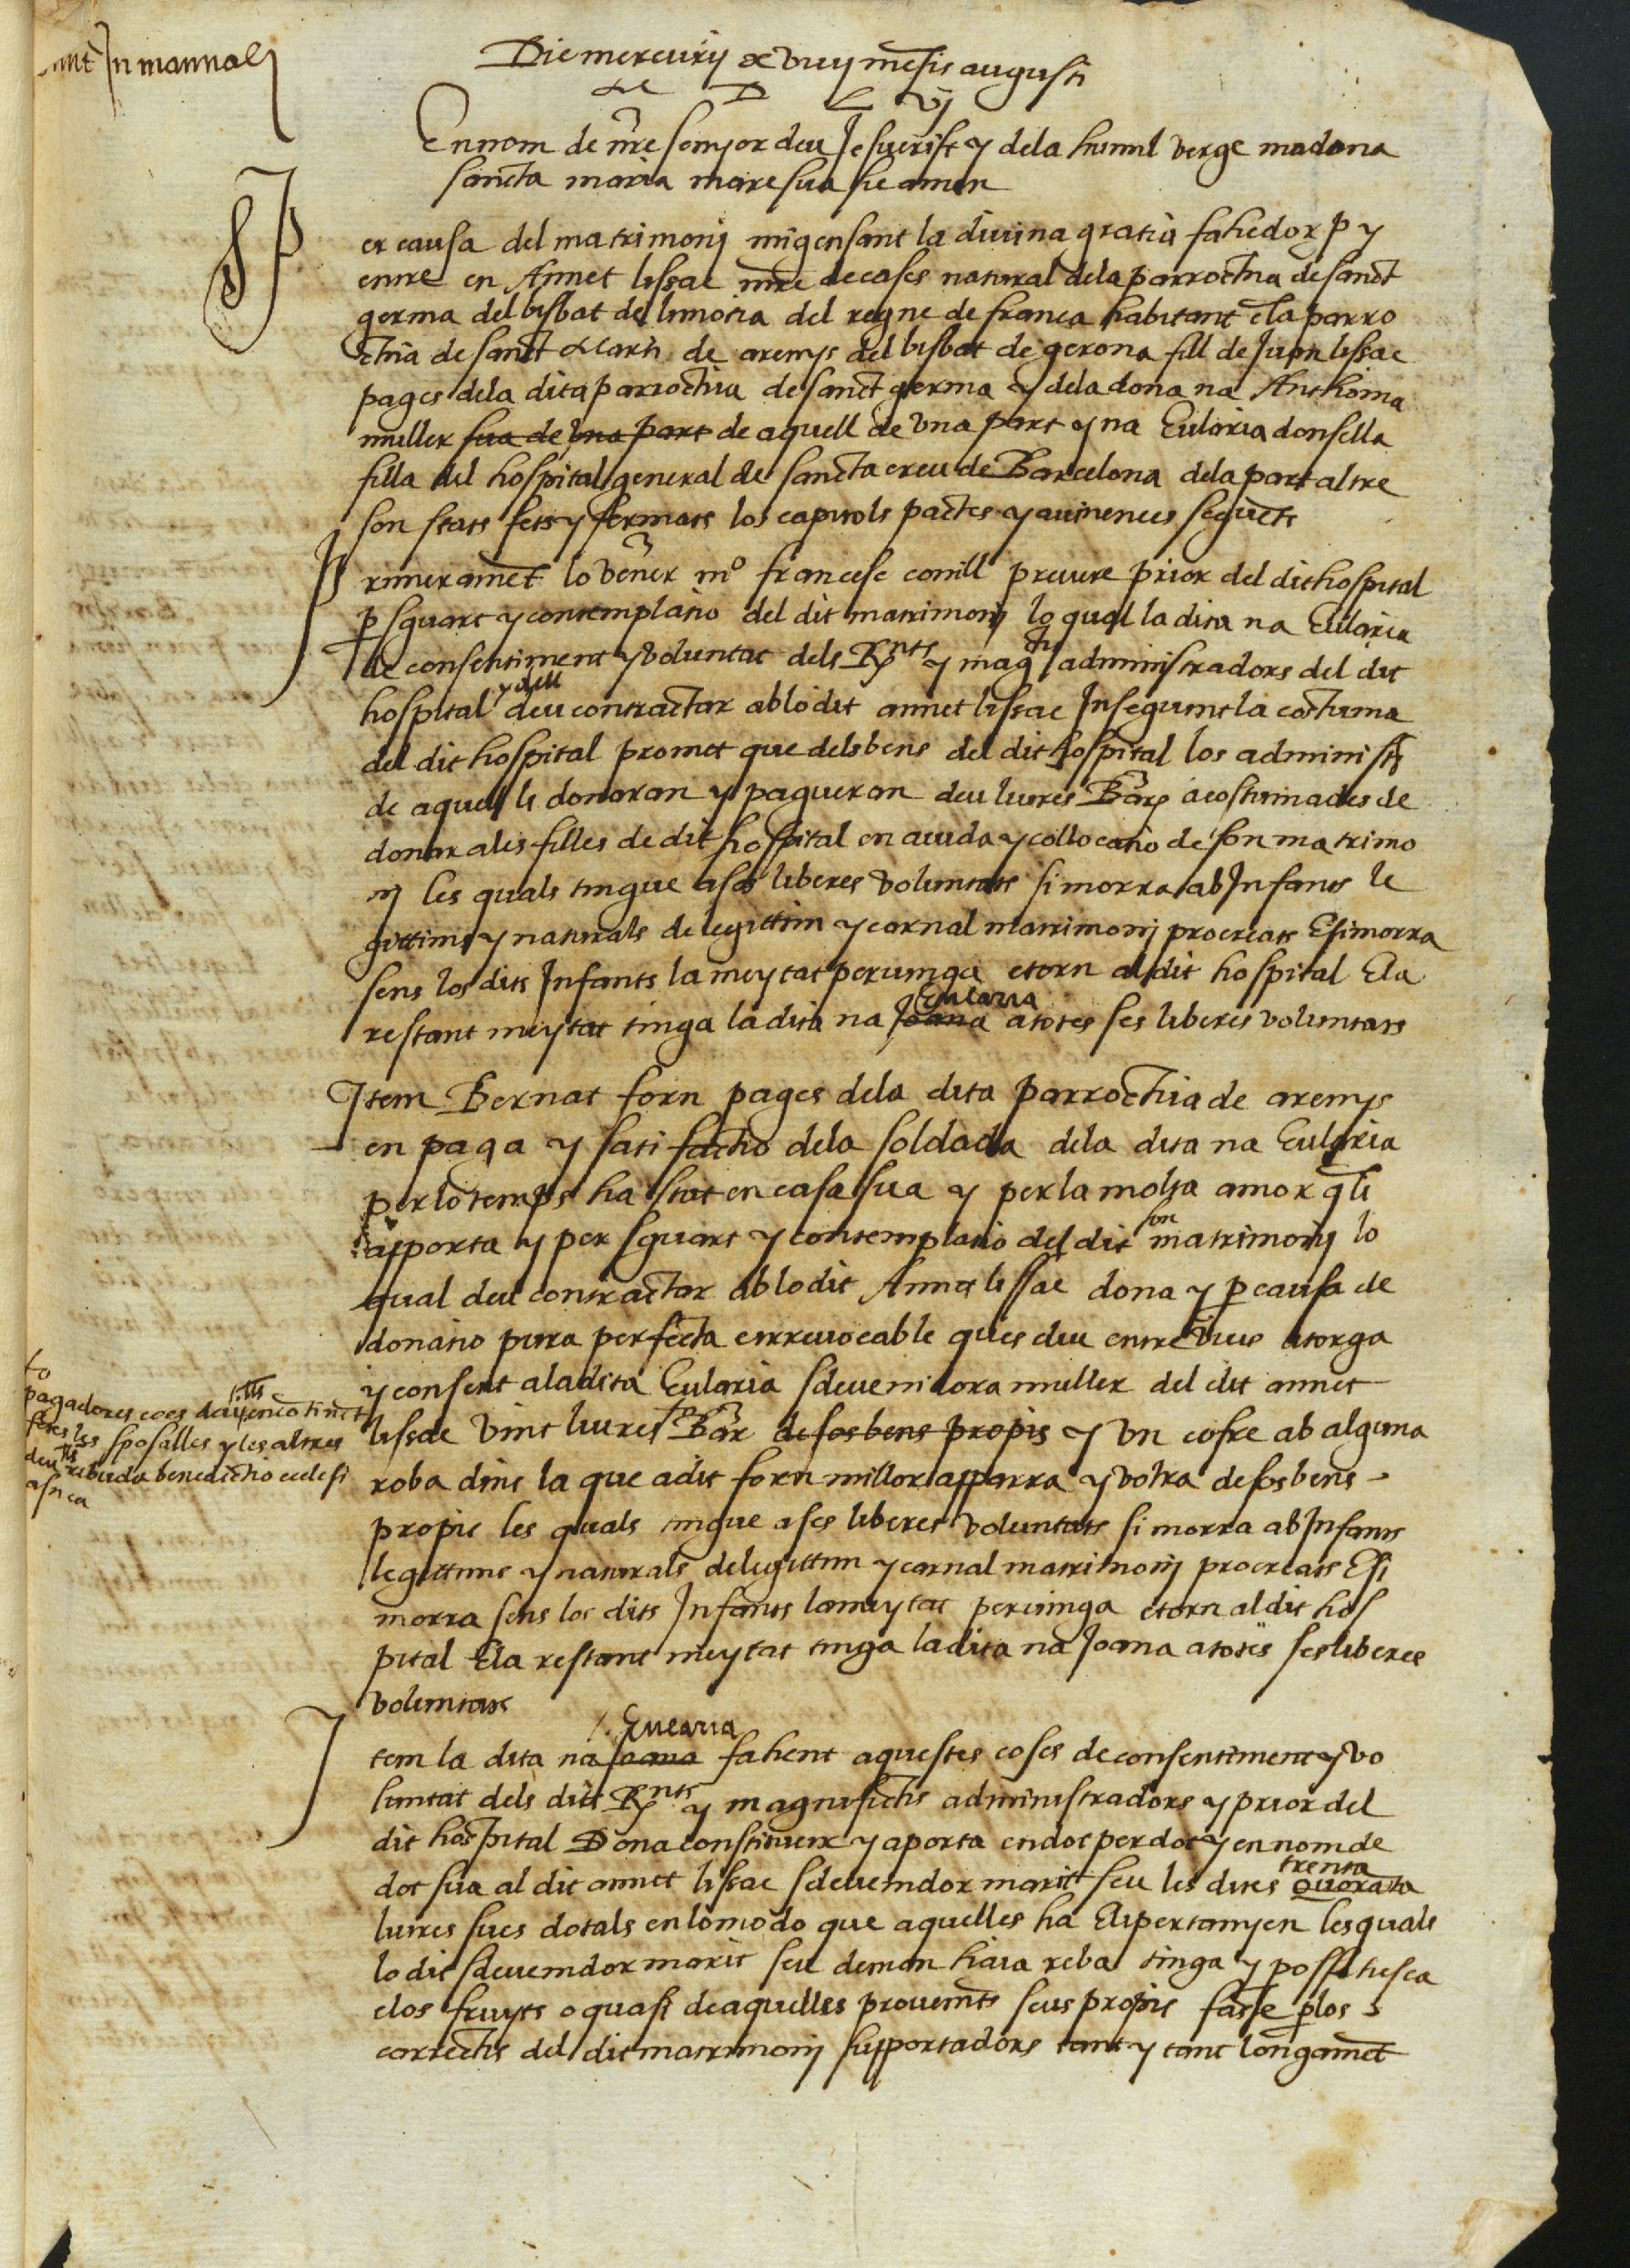 In mannali
Die mercurij xviiij mēsis augusti
M D L vj
En nom de nr̄e senyor deu Jesucrist y dela humil verge madona
sancta maria mare sua sie amen
Per causa del matrimonj migensant la divina gratia fahedor p y
entre en Annet lissac mr̄e de cases natural dela parrochia de sanct
germa del bisbat de limotia del regne de franca habitant ē la parro
chia de sanct Marti de arenys del bisbat de gerona fill de Juan lissac
pages dela dita parrochia de sanct germa y dela dona na Anthonia
muller sua de una part de aquell de una part y na Eularia donsella
filla del hospital general de sancta creu de Barcelona dela part altre
son stats fets y fermats los capitols pactes y avinences seguēts
Primeramēt lo vēner mº francesc conill prevere prior del dit hospital
p sguart y contemplatio del dit matrimonj lo qual la dita na Eularia
de consentiment y voluntat dels Rnts y magchs administradors del dit
hospital y dell deu contractar ab lo dit annet lissac Inseguint la costuma
del dit hospital promet que dels bens del dit hospital los administrs
de aquell li donaran y pagueran deu liures Barē acostumades de
donar a les filles de dit hospital en aiuda y collocatio de son matrimo
nj les quals tingue a ses liberes voluntats si morra ab Infants le
gittims y naturals de legittim y carnal matrimonj procreats E si morra
sens los dits Infants la meytat pervinga e torn al dit hospital E la
restant meytat tinga la dita na Joana Eularia a totes ses liberes voluntats
Item Bernat forn pages dela dita parrochia de arenys
en paga y satisfactio dela soldada dela dita na Eularia
per lo temps ha stat en casa sua y per la molta amor q li
apporta y per sguart y contemplatio del dit son matrimonj lo
qual deu contractar ab lo dit Annet lissac dona y p causa de
donatio pura perfecta e irrevocable ques diu entre vius atorga
y consent a la dita Eularia sdevenidora muller del dit annet
lissac vint liures Barē de sos bens propis y un cofre ab alguna
roba dins la que a dit forn millor apparra y volra de sos bens
propis les quals tingue a ses liberes voluntats si morra ab Infants
legittims y naturals de legittim y carnal matrimonj procreats E si
morra sens los dits Infants la meytat pervinga e torn al dit hos
pital E la restant meytat tinga la dita na Joana a totes ses liberes
voluntats
to pagadores coes deu lls encōtinēt
fetes les sposalles y les altres
deu lls rebuda benedictio eclesi
astica
Item la dita na Joana Eularia fahent aquestes coses de consentiment y vo
luntat dels dits Rnts y magnifichs administradors y prior del
dit hospital Dona constitueix y aporta en dot per dot y en nom de
dot sua al dit annet lissac sdevenidor marit seu les dites quoranta trenta
liures sues dotals en lo modo que aquelles ha E li pertanyen les quals
lo dit sdevenidor marit seu deman haia reba tinga y possehesca
e los fruyts o quasi de aquelles provenīts seus propis fasse p los
carrechs del dit matrimonj supportadors tant y tant longamēt